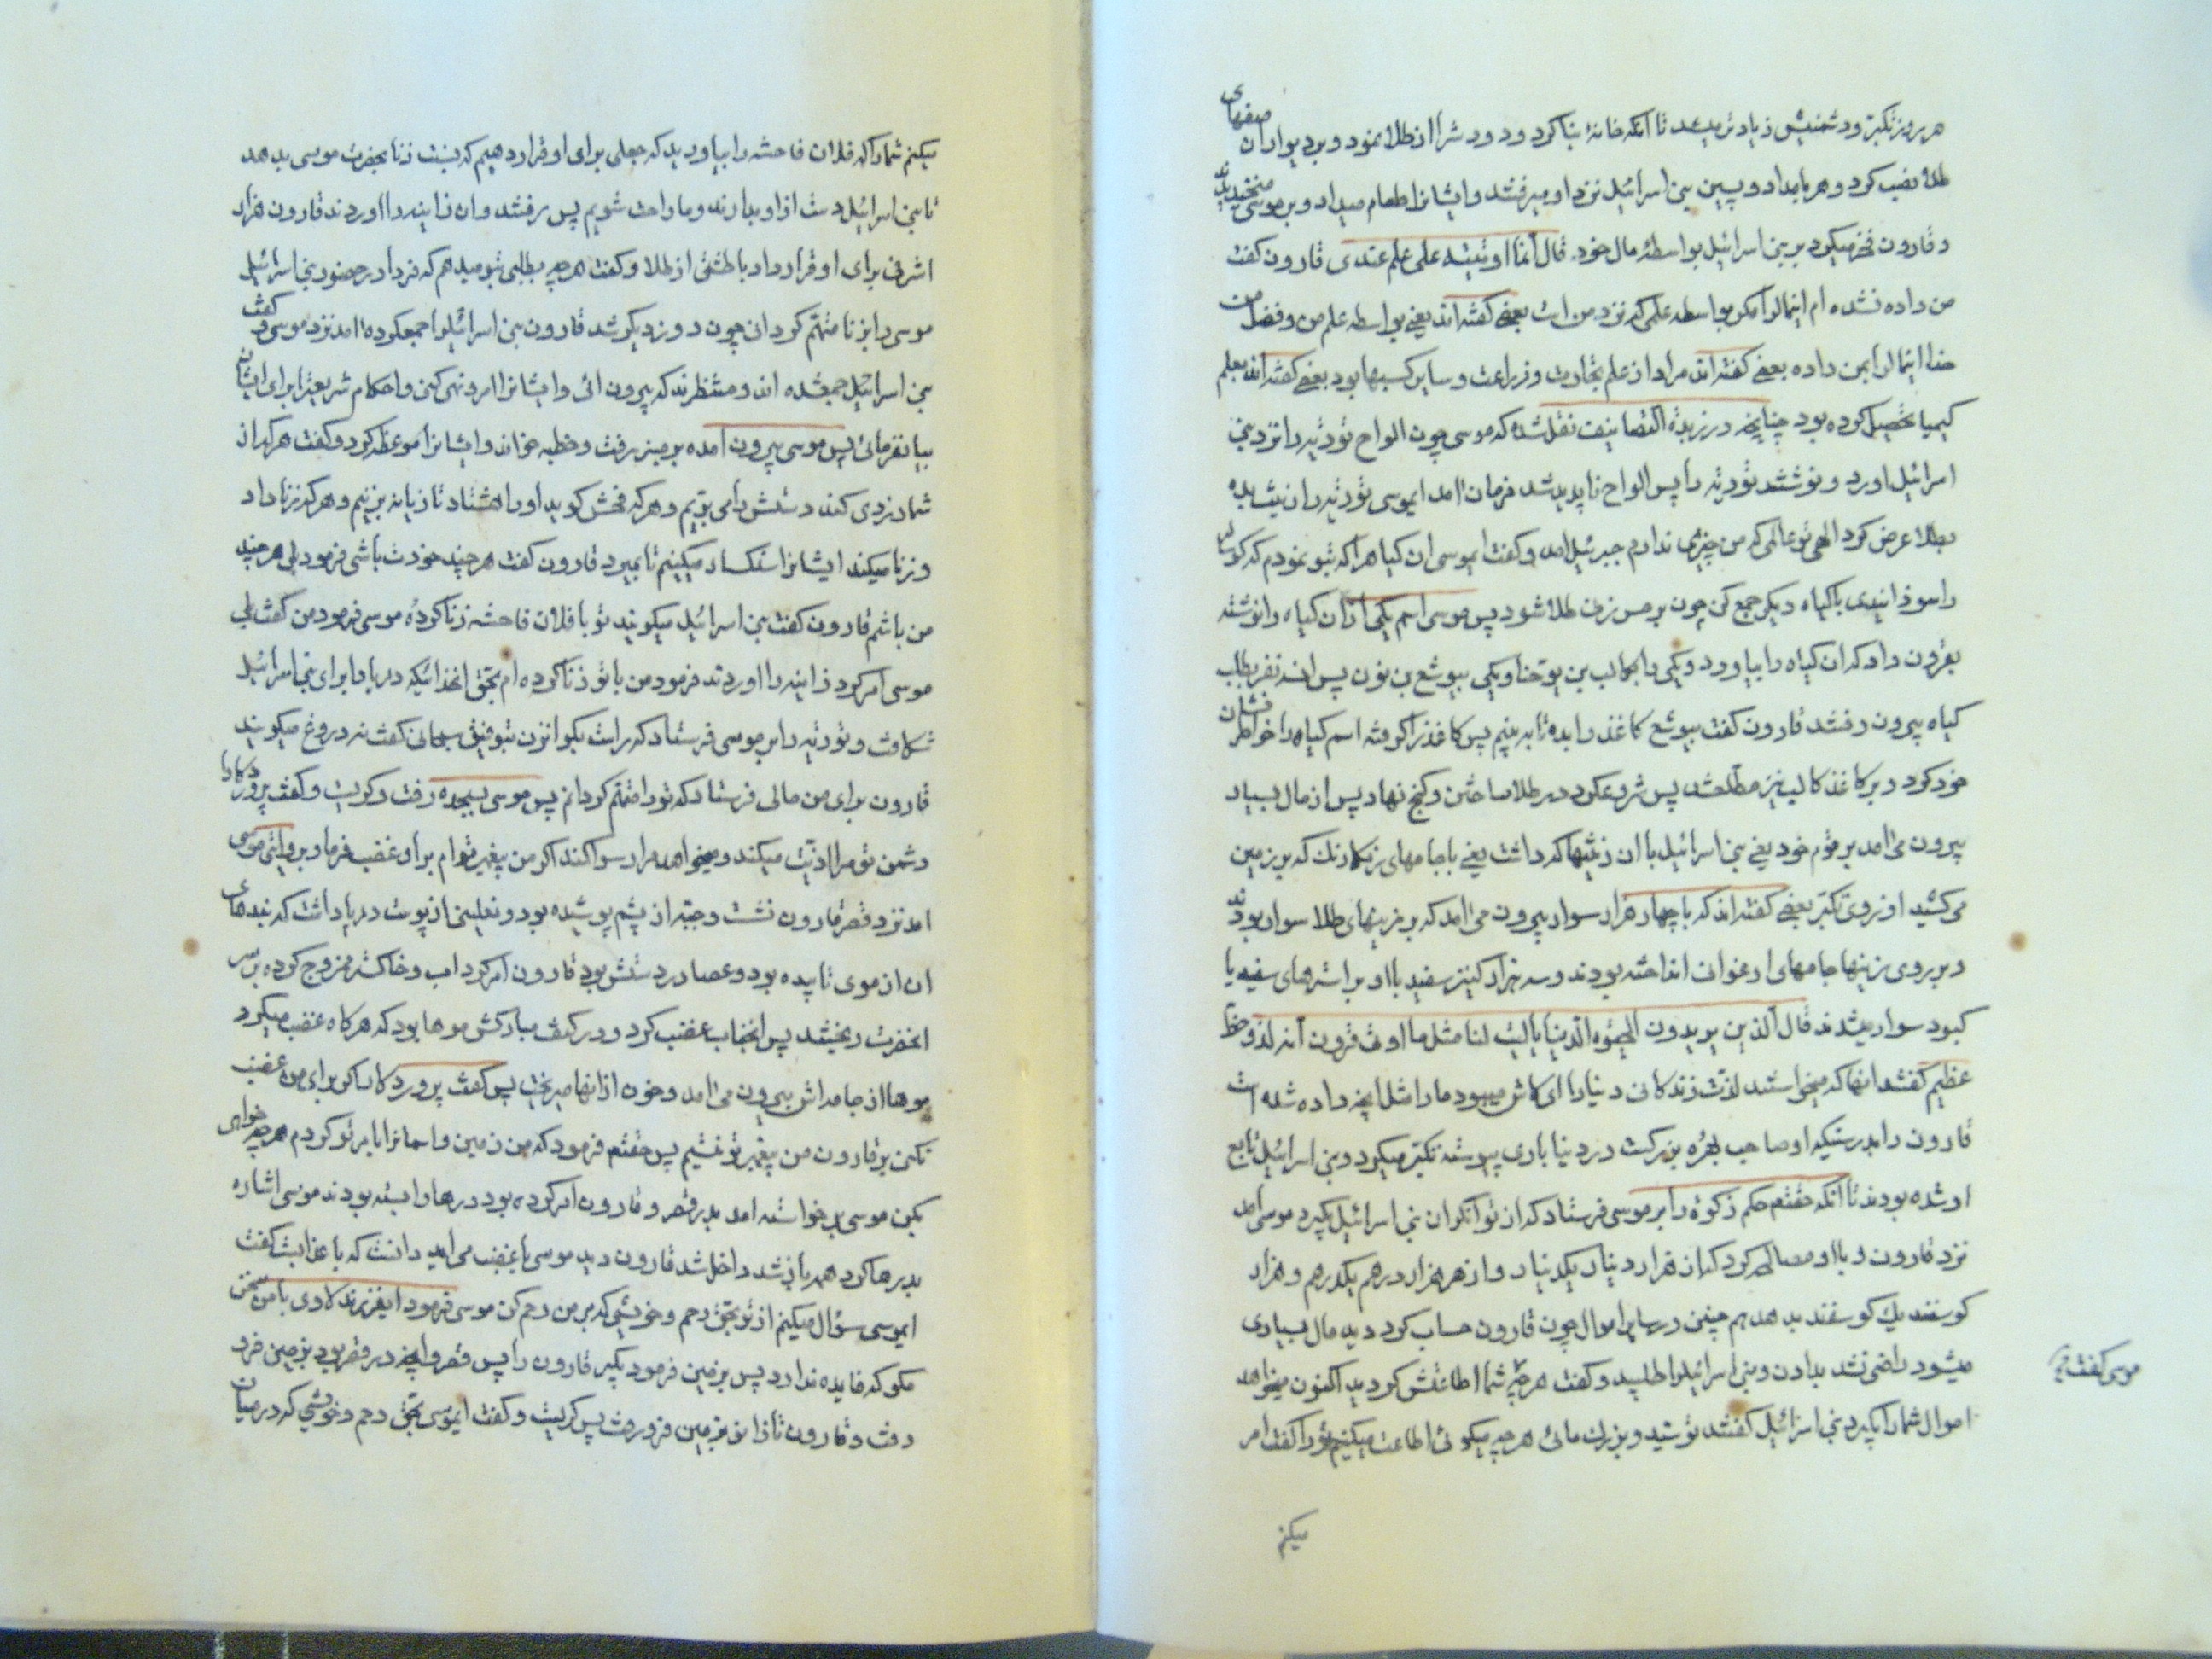 هر روز تکبر و دشمنیش زیادتر میشد تا آنکه خانهٔ بنا کرد و در و درشرا از طلا نمود و بر دیوار آن صفهای
طلا نصب کرد و هر بامداد و پسین بنی اسرائیل نزد او میرفتند و ایشانرا طعام میداد و بر موسی میخندیدند
و قارون فخر میکرد بر بنی اسرائیل بواسطهٔ مال خود قال انما اوتیته علی علم عندی قارون گفت
من داده نشده ام اینمالرا مگر بواسطه علمی که نزد من است بعضی گفته اند یعنی بواسطه علم من و فضل من
خدا اینمالرا بمن داده بعضی گفته اند مراد از علم تجارت و زراعت و سایر کسبها بود بعضی گفته اند بعلم
کیمیا تحصیل کرده بود چنانچه در زبدة التصانیف نقل شده که موسی چون الواح توریة را نزد بنی
اسرائیل آورد و نوشتند توریة را پس الواح ناپدید شد فرمان آمد ایموسی توریة را نشاید
بطلا عرض کرد الهی تو عالمی که من چیزی ندارم جبرئیل آمد و گفت ایموسی آن گیاهرا که بتو نمودم که گوساله
را سوزانیدی با گیاه دیگر جمع کن چون بر مس زنی طلا شود پس موسی اسم یکی از آن گیاه را نوشته
بقرون داد که آن گیاه را بیاورد و یکی را بکالب بن یوحنا و یکی بیوشع بن نون پس آن سه نفر بطلب
گیاه بیرون رفتند قارون گفت بیوشع کاغذ را بده تا ببینم پس کاغذرا گرفته اسم گیاه را خواطر نشان
خود کرد و بر کاغذ کالب نیز مطلع شد پس شروع کرد در طلا ساختن و گنج نهاد پس از مال بسیار
بیرون می آمد بر قوم خود یعنی بنی اسرائیل با آن زینتها که داشت یعنی با جامهای رنگارنگ که بر زمین
می کشید از روی تکبر بعضی گفته اند که با چهار هزار سوار بیرون می آمد که بر زینهای طلا سوار بودند
و بر روی زینها جامهای ارغوانی انداخته بودند و سه هزار کنیز سفید با او بر استرهای سفید یا
کبود سوار میشدند قال الذین یریدون الحیوة الدنیا یا لیت لنا مثل ما اوتی قرون انه لذو حظ
عظیم گفتند آنها که میخواستند لذت زندگانی دنیا را ای کاش میبود ما را مثل آنچه داده شده است
قارون را بدرستیکه او صاحب بهره بزرگست در دنیا باری پیوسته تکبر میکرد و بنی اسرائیل تابع
او شده بودند تا آنکه حقتعم حکم زکوة را بر موسی فرستاد که از توانگران بنی اسرائیل بگیرد موسی آمد
نزد قارون و با او مصالحه کرد که از هزار دینار یکدینار و از هر هزار درهم یکدرهم و هزار
گوسفند یك گوسفند بدهد هم چنین در سایر اموال چون قارون حساب کرد دید مال بسیاری
میشود راضی نشد بدادن و بنی اسرائیلرا طلبید و گفت هر چه شما اطاعتش کردید اکنون میخواهد
موسی گفت
اموال شما را بگیرد بنی اسرائیل گفتند تو سید و بزرك مائی هر چه میگوئی اطاعت میکنیم تورا گفت امر
میکنم
میکنم شما را که فلان فاحشه را بیاورید که جعلی برای او قرار دهیم که نسبت زنا بحضرت موسی بدهد
تا بنی اسرائیل دست از او بدارند و ما راحت شویم پس برفتند و آن زانیه را آوردند قارون هزار
اشرفی برای او قرار داد با طشتی از طلا و گفت هر چه بطلبی بتو میدهم که فردا در حضور بنی اسرائیل
موسی را بزنا متهم گردانی چون روز دیگر شد قارون بنی اسرائیلرا جمعکرده آمد نزد موسی و گفت
بنی اسرائیل جمعشده اند و منتظرند که بیرون آئی و ایشانرا امر و نهی کنی و احکام شریعترا برای ایشان
بیانفرمائی پس موسی بیرون آمده بر منبر رفت و خطبه خواند و ایشانرا موعظه کرد و گفت هر که از
شما دزدی کند دستش را می بریم و هر که فحش گوید او را هشتاد تازیانه بزنیم و هر که زن داد
و زنا میکند ایشانرا سنگسار میکنیم تا بمیرد قارون گفت هر چند خودت باشی فرمود بلی هر چند
من باشم قارون گفت بنی اسرائیل میگویند تو با فلان فاحشه زنا کردهٔ موسی فرمود من گفت بلی
موسی امر کرد زانیه را آوردند فرمود من با تو زنا کرده ام بحق آنخدائیکه دریا را برای بنی اسرائیل
شکافت و توریة را بر موسی فرستاد که راست بگو آنزن بتوفیق سبحانی گفت نه دروغ میگویند
قارون برای من مالی فرستاد که تورا متهم گردانم پس موسی بسجده رفت و گریست و گفت پروردگارا
دشمن تو مرا اذیت میکند و میخواهد مرا رسوا کند اگر من پیغمبر توام بر او غضب فرما و بروایتی موسی
آمد نزد قصر قارون نشست و جبه از پشم پوشیده بود و نعلینی از پوست در پا داشت که بندهای
آن از موی تابیده بود و عصا در دستش بود قارون امر کرد آب و خاکستر ممزوج کرده بر سر
آنحضرت ریختند پس آنجناب غضب کرد و در کتف مبارکش موها بود که هر گاه غضب میکرد
موها از جامه اش بیرون می آمد و خون از آنها میریخت پس گفت پروردگارا اگر برای من غضب
نکنی بر قارون من پیغمبر تو نیستم پس حقتعم فرمود که من زمین و آسمانرا بامر تو کردم هر چه خواهی
بکن موسی برخواسته آمد بدر قصر و قارون امر کرده بود درها را بسته بودند موسی اشاره
بدرها کرد همه باز شد داخل شد قارون دید موسی با غضب می آید دانست که با عذابست گفت
ایموسی سؤال میکنم از تو بحق رحم و خویشی که بر من رحم کن موسی فرمود ایفرزند لاوی با من سخن
مگو که فایده ندارد پس بزمین فرمود بگیر قارون را پس قصر و آنچه در قصر بود بزمین فرو
رفت و قارون تا زانو بزمین فرو رفت پس گریست و گفت ایموسی بحق رحم و خویشی که در میان